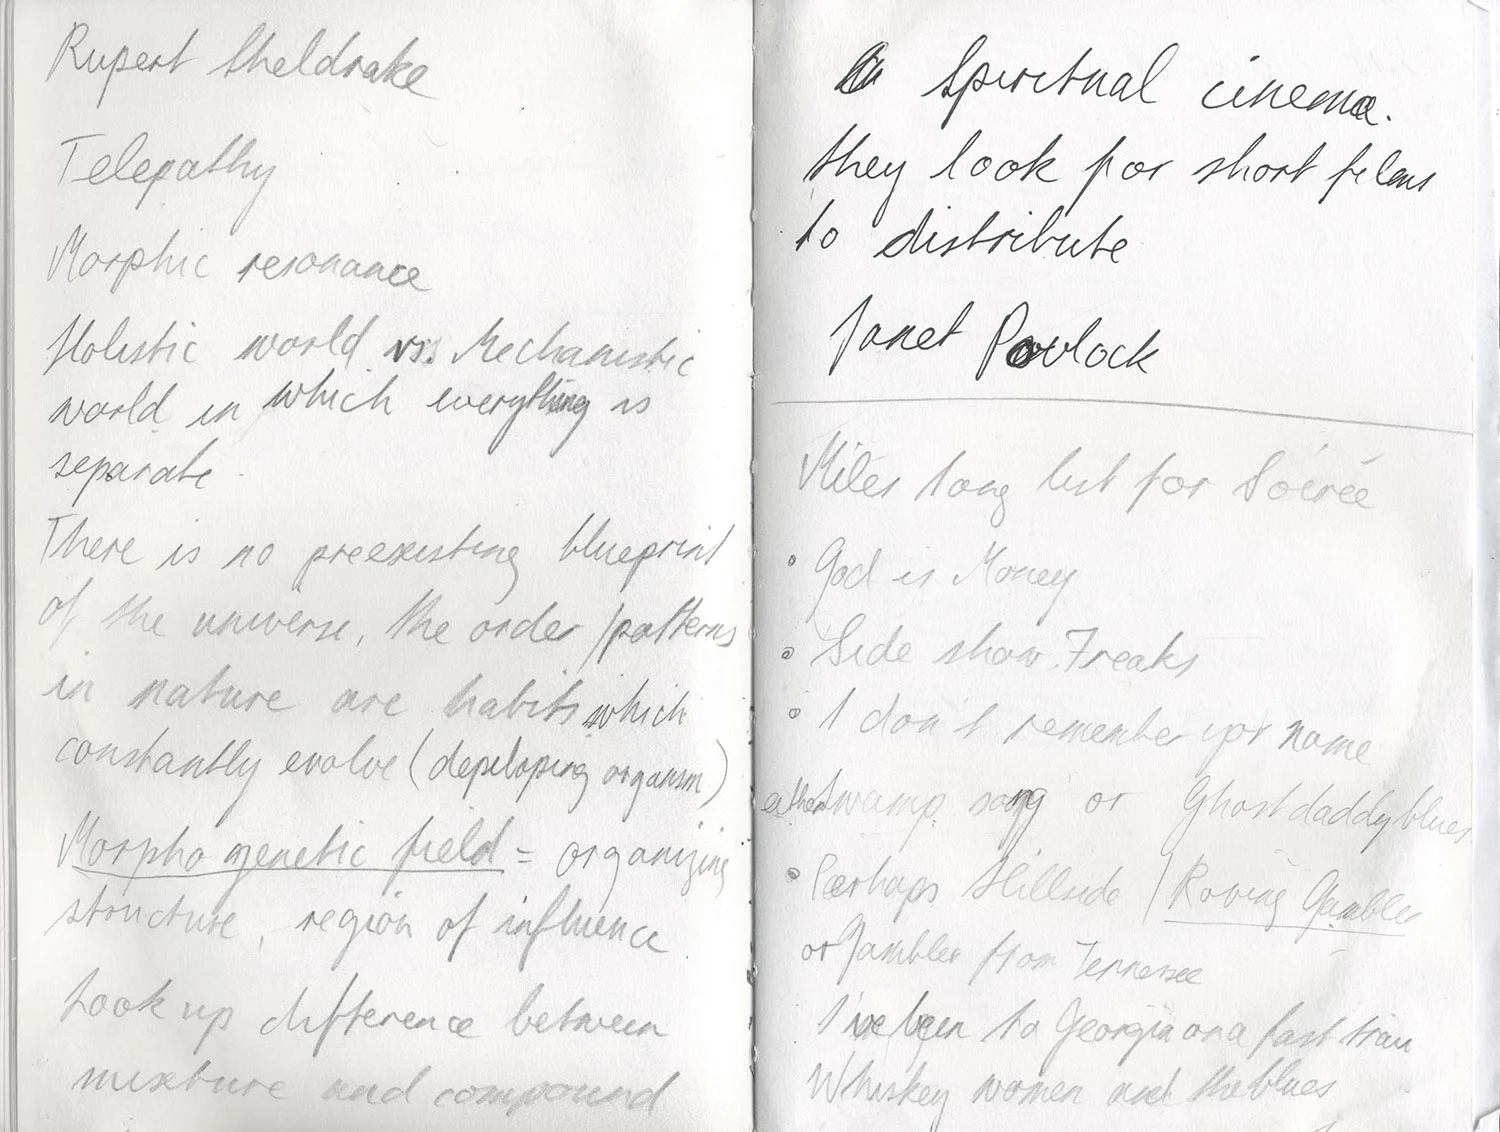 Rupert Sheldrake
Telepathy
Morphic resonance
Holistic world vs. Mechanistic
world in which everything is
separate.
There is no preexisting blueprint
of the universe, the order / patterns
in nature are habits which
constantly evolve (developing organism)
Morphogenetic field = organizing
structure, region of influence
Look up difference between
mixture and compound
Spiritual cinema.
they look for short films
to distribute
Janet
Miles long list for Soérée
• God is Money
• Side show Freaks
• I don't remember your name
either swamp song or Ghostdaddyblues
• Perhaps Hillside / Roving Gambler
or Gambler from Tennessee
I've been to Georgia on a fast train
Whiskey women and the blues